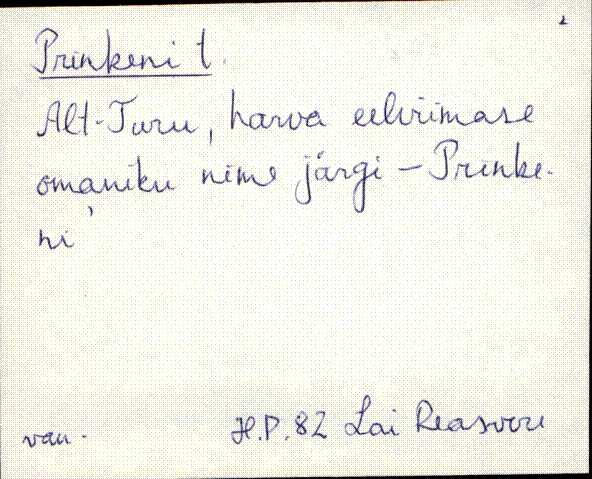 Prinkeni t.
Alt-Turu, harva eelviimase
omaniku nime järgi – Prinke-
ni
van. H.P. 82 Lai Reasvere